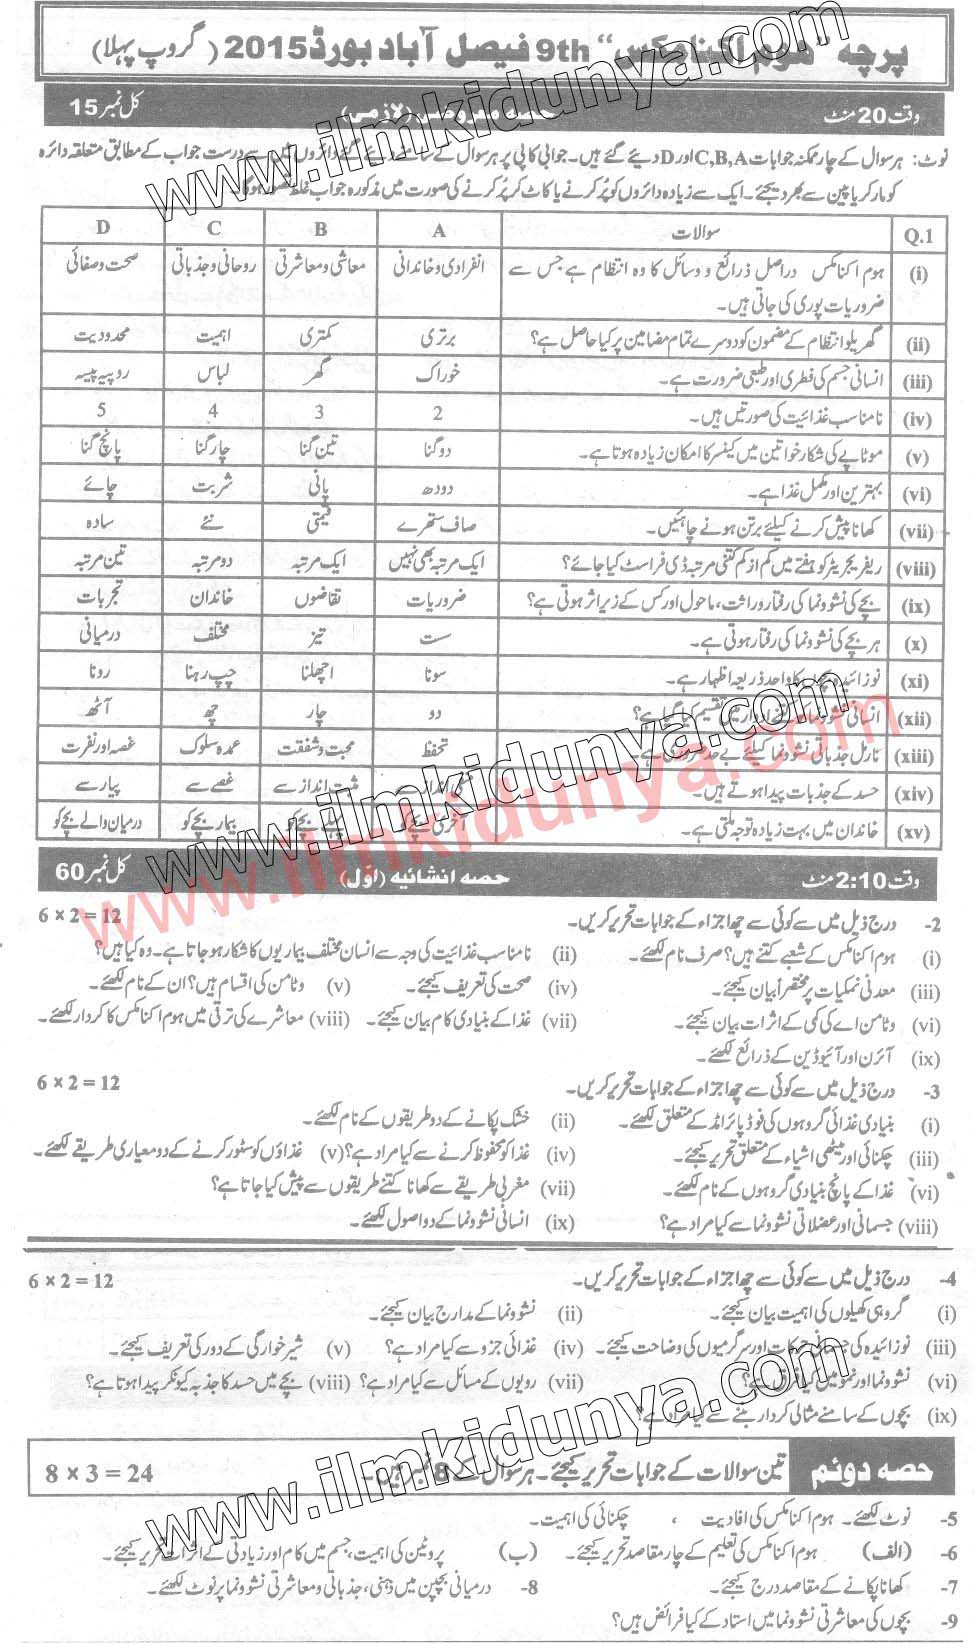 پرچہ "ہوم اکنامکس" 9th فیصل آباد بورڈ 2015 (گروپ پہلا)
وقت 20 منٹ حصہ معروضی (لازمی) کل نمبر 15
نوٹ: ہر سوال کے چار ممکنہ جوابات C,B,A اور D دیئے گئے ہیں۔ جوابی کاپی پر ہر سوال کے سامنے دیئے گئے دائروں میں سے درست جواب کے مطابق متعلقہ دائرہ
کو مارکر یا پین سے بھر دیجئے۔ ایک سے زیادہ دائروں کو پُر کرنے یا کاٹ کر پُر کرنے کی صورت میں مذکورہ جواب غلط تصور ہوگا۔
Q.1 سوالات A B C D
(i) ہوم اکنامکس دراصل ذرائع و وسائل کا وہ انتظام ہے جس سے انفرادی و خاندانی معاشی و معاشرتی روحانی و جذباتی صحت و صفائی
ضروریات پوری کی جاتی ہیں۔
(ii) گھریلو انتظام کے مضمون کو دوسرے تمام مضامین پر کیا حاصل ہے؟ برتری کمتری اہمیت محدودیت
(iii) انسانی جسم کی فطری اور طبعی ضرورت ہے۔ خوراک گھر لباس روپیہ پیسہ
(iv) نامناسب غذائیت کی صورتیں ہیں۔ 2 3 4 5
(v) موٹاپے کی شکار خواتین میں کینسر کا امکان زیادہ ہوتا ہے۔ دو گنا تین گنا چار گنا پانچ گنا
(vi) بہترین اور مکمل غذا ہے۔ دودھ پانی شربت چائے
(vii) کھانا پیش کرنے کیلئے برتن ہونے چاہئیں۔ صاف ستھرے قیمتی نئے سادہ
(viii) ریفریجریٹر کو ہفتے میں کم از کم کتنی مرتبہ ڈی فراسٹ کیا جائے؟ ایک مرتبہ بھی نہیں ایک مرتبہ دو مرتبہ تین مرتبہ
(ix) بچے کی نشوونما کی رفتار وراثت، ماحول اور کس کے زیر اثر ہوتی ہے؟ ضروریات تقاضوں خاندان تجربات
(x) ہر بچے کی نشوونما کی رفتار ہوتی ہے۔ ست تیز مختلف درمیانی
(xi) نوزائیدہ بچے کا واحد ذریعہ اظہار ہے۔ سونا اچھلنا چپ رہنا رونا
(xii) انسانی نشوونما کو کتنے ادوار میں تقسیم کیا گیا ہے؟ دو چار چھ آٹھ
(xiii) نارمل جذباتی نشوونما کیلئے بے حد ضروری ہے۔ تحفظ محبت و شفقت عمدہ سلوک غصہ اور نفرت
(xiv) حسد کے جذبات پیدا ہوتے ہیں۔ منفی انداز سے مثبت انداز سے غصے سے پیار سے
(xv) خاندان میں بہت زیادہ توجہ ملتی ہے۔ آخری بچے کو پہلے بچے کو بیمار بچے کو درمیان والے بچے کو
وقت 2:10 منٹ حصہ انشائیہ (اوّل) کل نمبر 60
2- درج ذیل میں سے کوئی سے چھ اجزاء کے جوابات تحریر کریں۔ 6 × 2 = 12
(i) ہوم اکنامکس کے شعبے کتنے ہیں؟ صرف نام لکھئے۔ (ii) نامناسب غذائیت کی وجہ سے انسان مختلف بیماریوں کا شکار ہو جاتا ہے۔ وہ کیا ہیں؟
(iii) معدنی نمکیات پر مختصراً بیان کیجئے۔ (iv) صحت کی تعریف کیجئے۔ (v) وٹامن کی اقسام ہیں؟ ان کے نام لکھئے۔
(vi) وٹامن اے کی کمی کے اثرات بیان کیجئے۔ (vii) غذا کے بنیادی کام بیان کیجئے۔ (viii) معاشرے کی ترقی میں ہوم اکنامکس کا کردار لکھئے۔
(ix) آئرن اور آئیوڈین کے ذرائع لکھئے۔
3- درج ذیل میں سے کوئی سے چھ اجزاء کے جوابات تحریر کریں۔ 6 × 2 = 12
(i) بنیادی غذائی گروہوں کی فوڈ پائرامڈ کے متعلق لکھئے۔ (ii) خشک پکانے کے دو طریقوں کے نام لکھئے۔
(iii) چکنائی اور میٹھی اشیاء کے متعلق تحریر کیجئے۔ (iv) غذا کو محفوظ کرنے سے کیا مراد ہے؟ (v) غذاؤں کو سٹور کرنے کے دو معیاری طریقے لکھئے۔
(vi) غذا کے پانچ بنیادی گروہوں کے نام لکھئے۔ (vii) مغربی طریقے سے کھانا کتنے طریقوں سے پیش کیا جاتا ہے؟
(viii) جسمانی اور عضلاتی نشوونما سے کیا مراد ہے؟ (ix) انسانی نشوونما کے دو اصول لکھئے۔
4- درج ذیل میں سے کوئی سے چھ اجزاء کے جوابات تحریر کریں۔ 6 × 2 = 12
(i) گروہی کھیلوں کی اہمیت بیان کیجئے۔ (ii) نشوونما کے مدارج بیان کیجئے۔
(iii) نوزائیدہ کی جسمانی حرکات اور سرگرمیوں کی وضاحت کیجئے۔ (iv) غذائی جزو سے کیا مراد ہے؟ (v) شیر خوارگی کے دور کی تعریف کیجئے۔
(vi) نشوونما اور نمو میں کیا فرق ہے؟ (vii) رویوں کے مسائل سے کیا مراد ہے؟ (viii) بچے میں حسد کا جذبہ کیونکر پیدا ہوتا ہے؟
(ix) بچوں کے سامنے مثالی کردار بننے سے کیا مراد ہے؟
حصہ دوئم تین سوالات کے جوابات تحریر کیجئے۔ ہر سوال کے 8 نمبر ہیں۔ 8 × 3 = 24
5- نوٹ لکھئے۔ ہوم اکنامکس کی افادیت ، چکنائی کی اہمیت۔
6- (الف) ہوم اکنامکس کی تعلیم کے چار مقاصد تحریر کیجئے۔ (ب) پروٹین کی اہمیت، جسم میں کام اور زیادتی کے اثرات تحریر کیجئے۔
7- کھانا پکانے کے مقاصد درج کیجئے۔ 8- درمیانی بچپن میں ذہنی، جذباتی و معاشرتی نشوونما پر نوٹ لکھئے۔
9- بچوں کی معاشرتی نشوونما میں استاد کے کیا فرائض ہیں؟
www.ilmkidunya.com
www.ilmkidunya.com
www.ilmkidunya.com
www.ilmkidunya.com